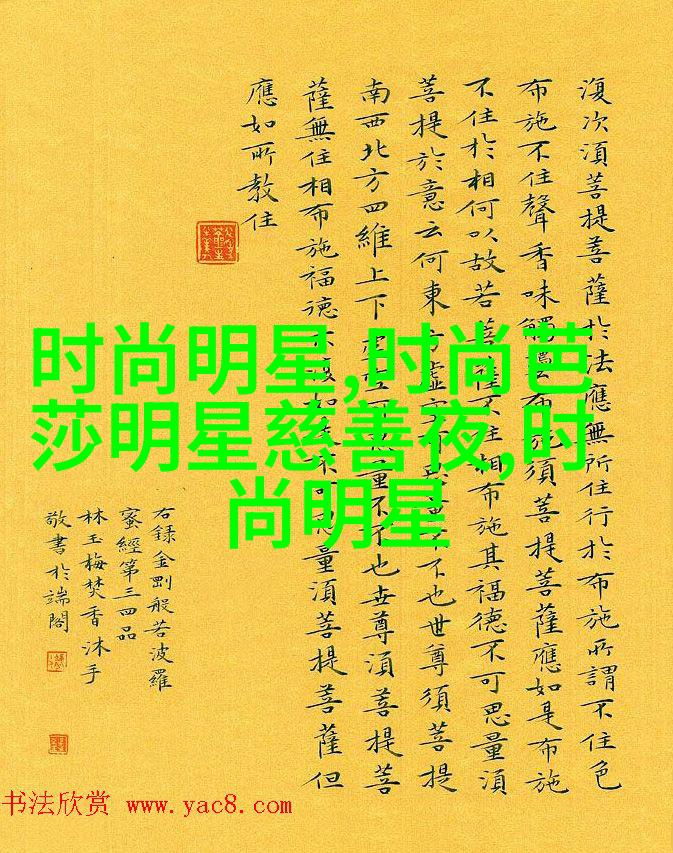 復次須菩提菩薩於法應無所住行於布施所謂不住色
布施不住聲香味觸法布施須菩提菩薩應如是布施
不住於相何以故若菩薩不住相布施其福德不可思量須
菩提於意云何東方虛空可思量不不也世尊須菩提
南西北方四維上下虛空可思量不不也世尊須菩提菩
薩無住相布施福德亦復如是不可思量須菩提菩薩但
應如所教住
时尚明星,时尚芭
莎明星慈善夜,时
尚明星
右錄金剛般若波羅
蜜經第三四品
林玉梅焚香沐手
敬書於端閣
书法欣赏 www.yac8.com